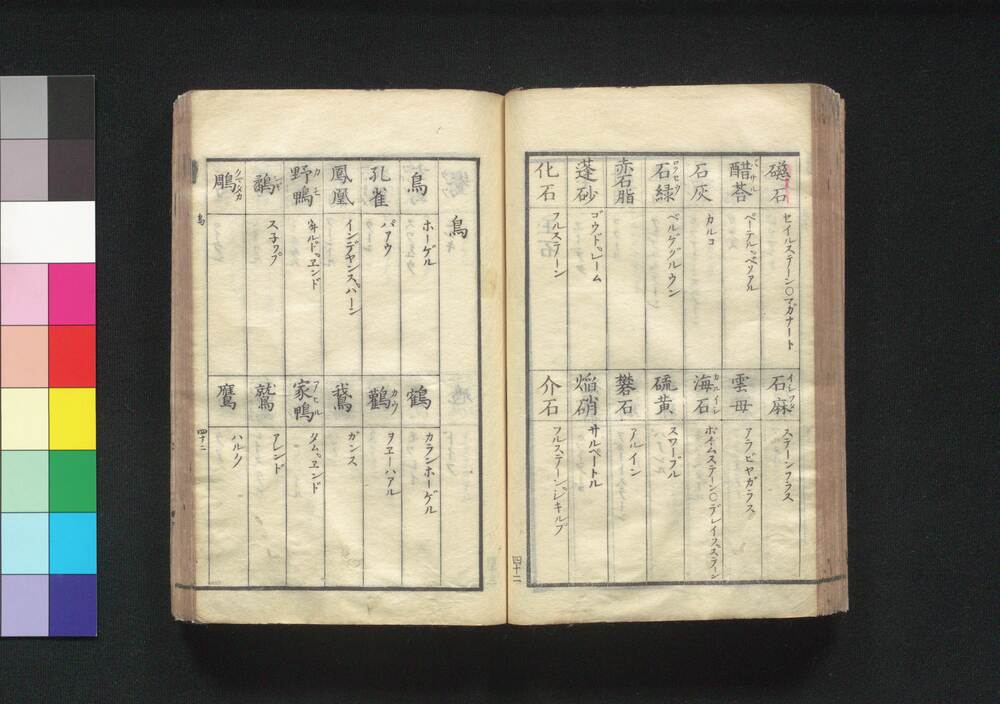 磁石
セイルステーン○マガナート
醋荅
ペーテルペソアル
石灰
カルコ
石緑
ベルググルウン
赤石脂
蓬砂
ゴウドレーム
化石
フルステーン
石麻
ステーンフラス
雲母
アラビヤガラス
海石
カルイシ
ホイムステーン○デレイフステーン
硫黄
スワーブル
礬石
アルイン
焔硝
サルペートル
介石
フルステーンシキルプ
四十二
鳥
鳥
ホーゲル
孔雀
パアウ
鳳凰
インデヤンスハーン
野鴨
カモ
ヰルドヱンド
鷸
シギ
スネップ
鵰
クマタカ
鶴
カランホーゲル
鸛
カウ
ヲヱーハアル
鵞
ガンス
家鴨
アヒル
タムヱンド
鷲
アレンド
鷹
ハルク
鳥
四十二